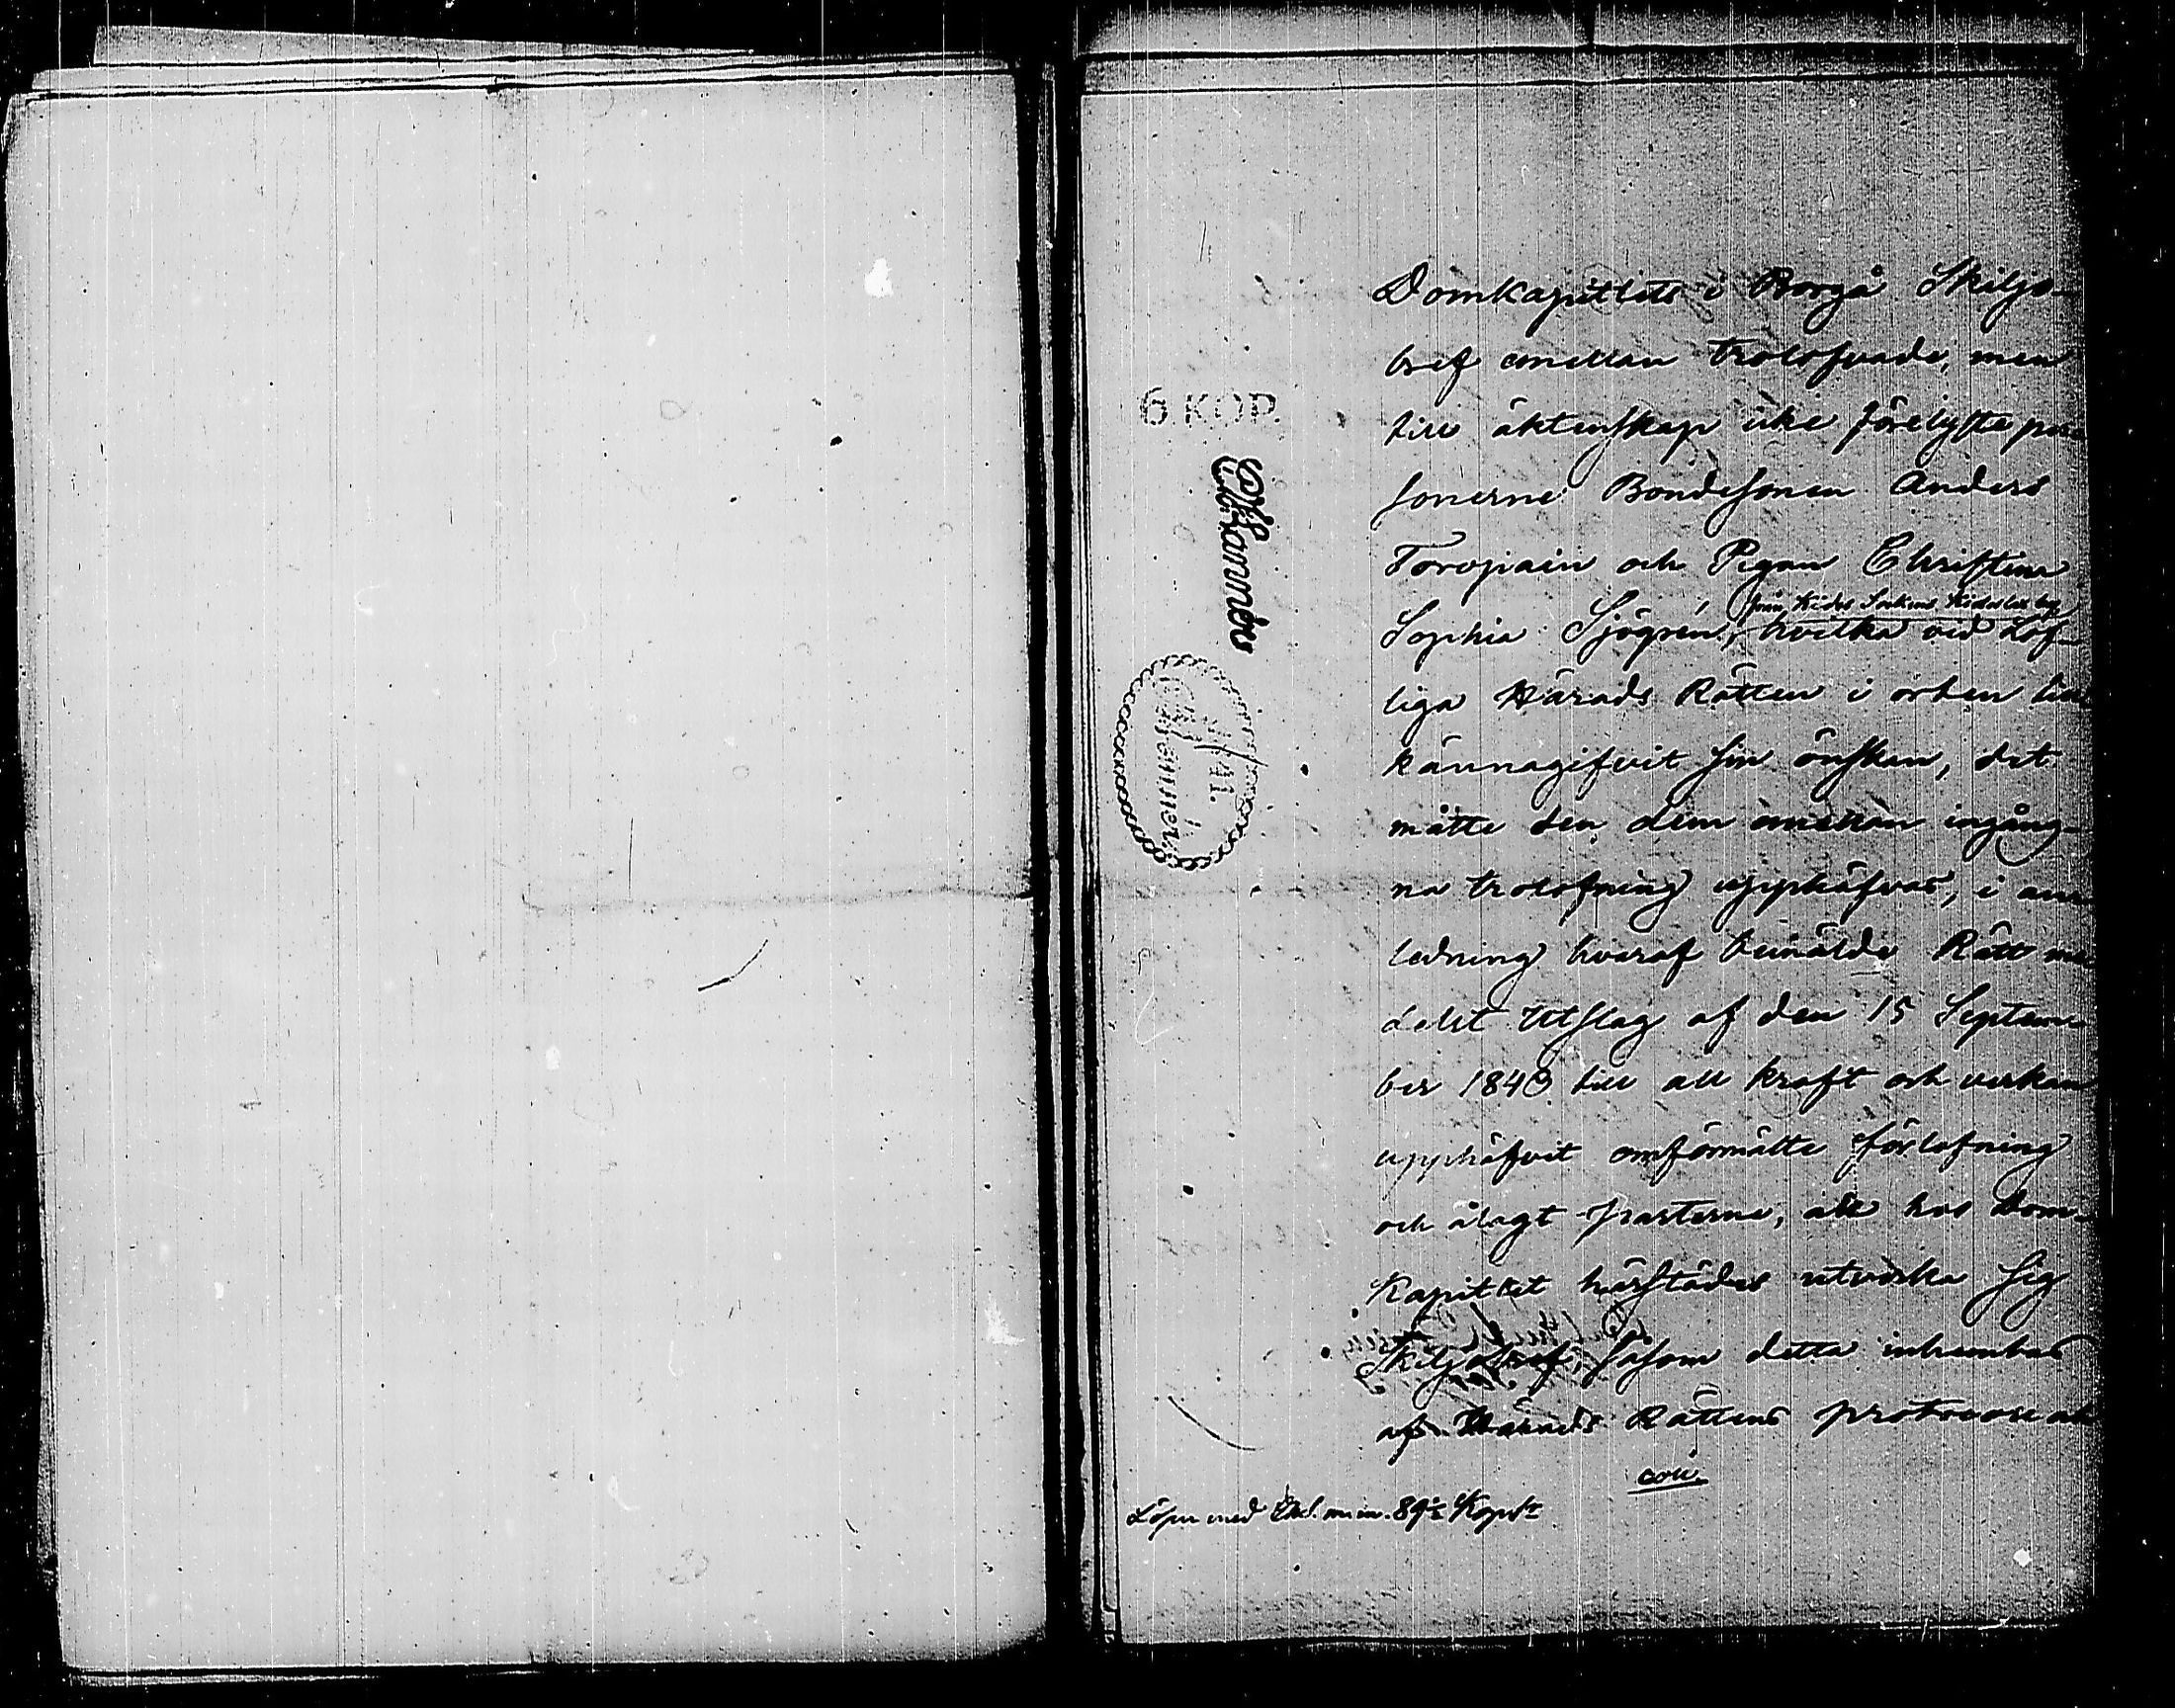 Domkapitlets i Borgå Skiljo-
bref emellan trolofvade, men
till äktenskap icke förelyste per-
sonerne Bondesonen Anders
Toropain och Pigan Christina
från Kides Sockns Kides by
Sophia Sjögrén, hvilka vid Lof-
liga Härads Rätten i orten till
kännagifvit sin önskan, det
måtte den dem emellan ingång-
na trolofning upphäfvas, i an-
ledning hvaraf bemälde Rätt me-
delst Utslag af den 15 Septem-
ber 1840 till all kraft och verkan
upphäfvit omförmälte förlofning
och ålagt parterne, att hos Dom-
Kapitlet härstädes utvärka sig
Skiljobref, såsom detta inhemtas
af Härads Rättens protocoll
coll.
Lösen med 89½ Kop. Sr
6 KOP.
41.